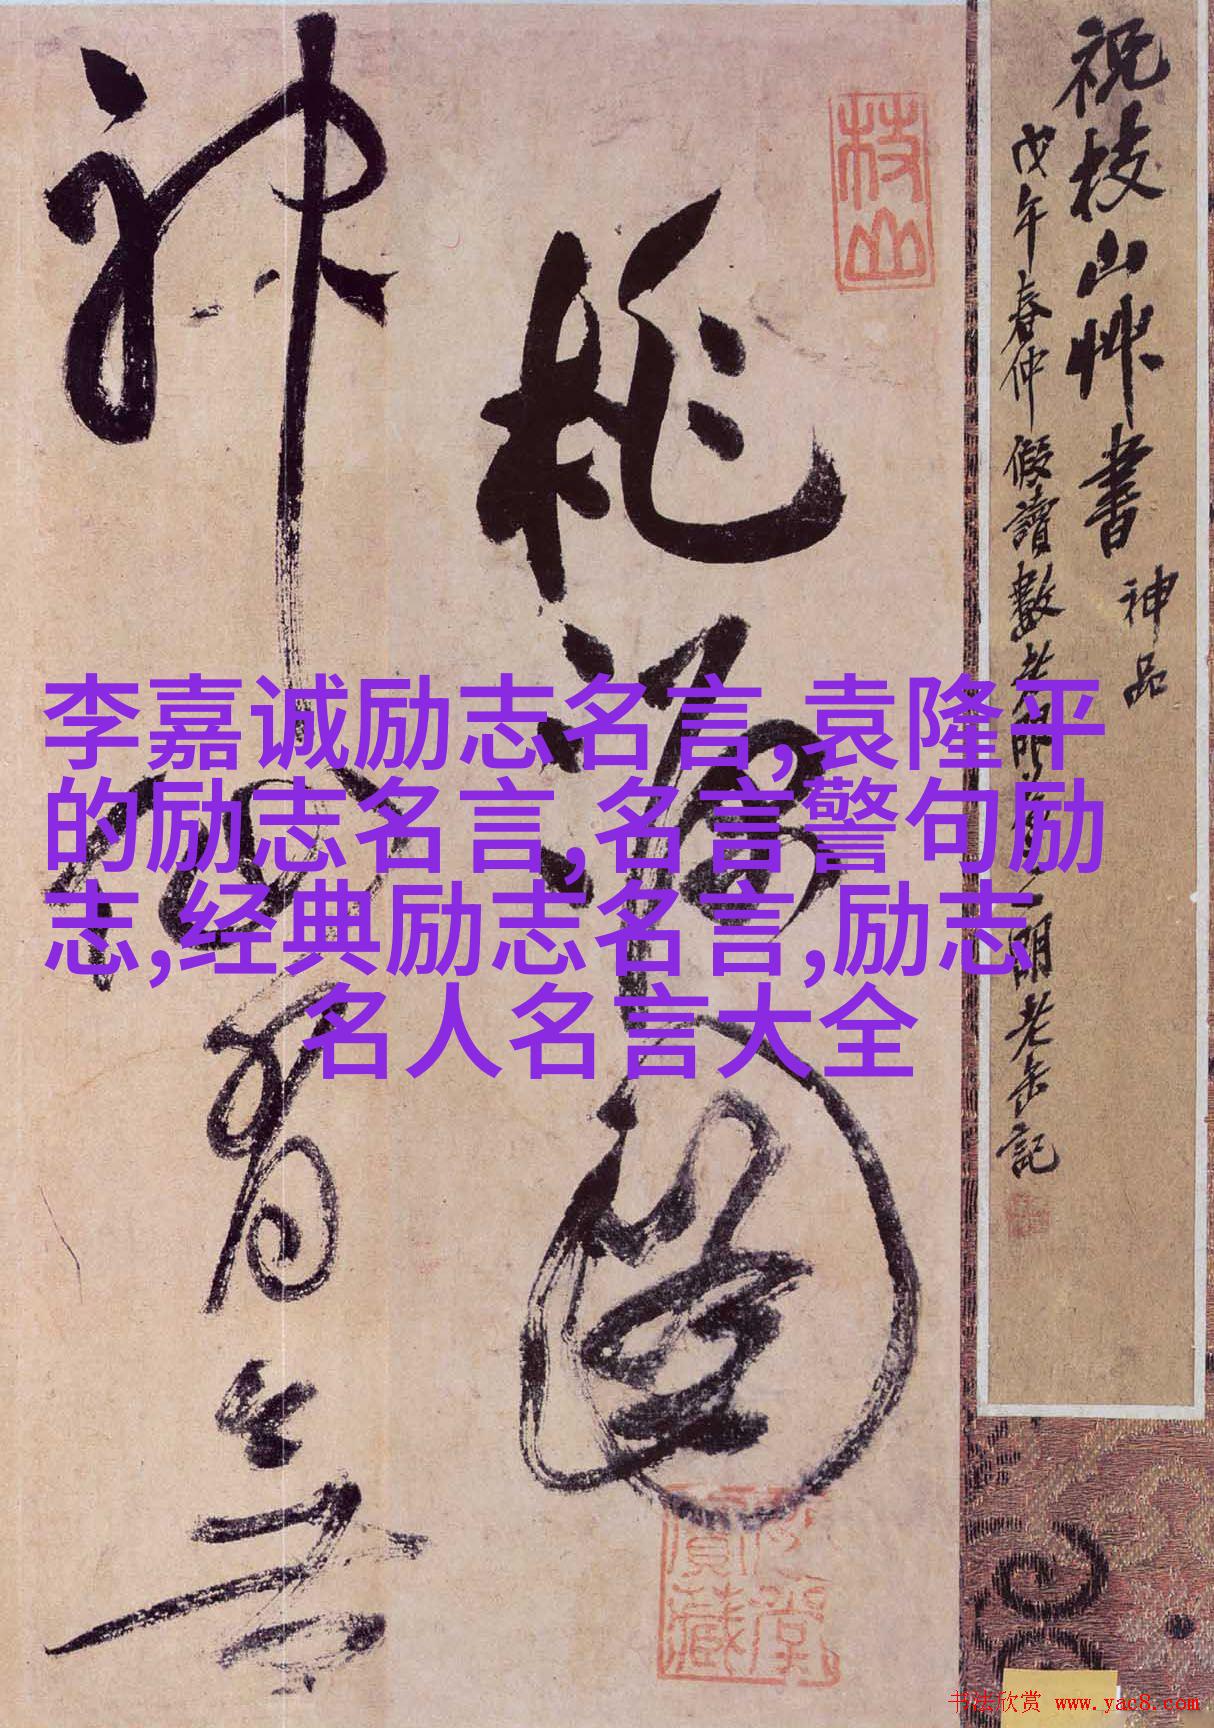 祝枝山艸書
神品
戊午春仲假讀數
老缶記
枝山
桃源圖
神仙有無
李嘉诚励志名言,袁隆平
的励志名言,名言警句励
志,经典励志名言,励志
名人名言大全
书法欣赏 www.yac8.com